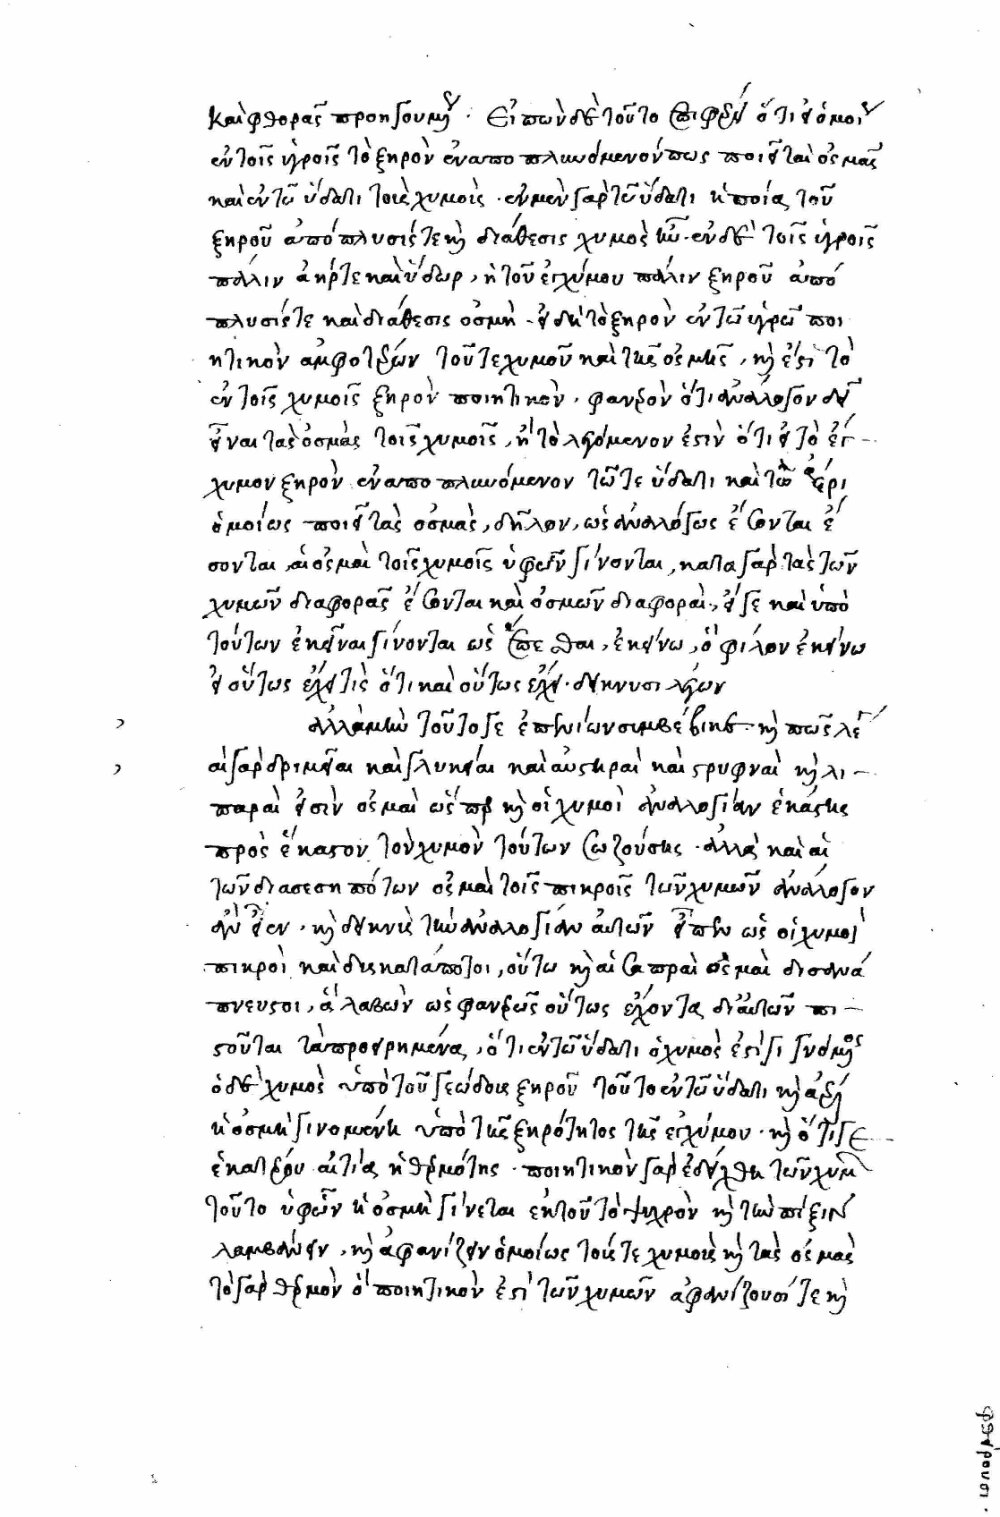 καὶ φθορᾶς προηγουμ· Εἰπὼν δὲ τοῦτο ἐπιφέρει ὅτι εἰ ὁμοί
ἐν τοῖς ὑγροῖς τὸ ξηρὸν ἐναποπλυνόμενόν πως ποιεῖ τὰς ὀσμὰς
καὶ ἐν τῷ ὕδατι τοὺς χυμούς· ἐν μὲν γὰρ τῷ ὕδατι ἡ ποία τοῦ
ξηροῦ ἀπόπλυσίς τε καὶ διάθεσις χυμὸς ἦν· ἐν δὲ τοῖς ὑγροῖς
πάλιν ἀήρ τε καὶ ὕδωρ, ἡ τοῦ ἐγχύμου πάλιν ξηροῦ ἀπό
πλυσίς τε καὶ διάθεσις ὀσμή· εἰ δὴ τὸ ξηρὸν ἐν τῷ ὑγρῷ ποι
ητικὸν ἀμφοτέρων τοῦ τε χυμοῦ καὶ τῆς ὀσμῆς, καὶ ἔστι τὸ
ἐν τοῖς χυμοῖς ξηρὸν ποιητικόν, φανερὸν ὅτι ἀνάλογον δεῖ
εἶναι τὰς ὀσμὰς τοῖς χυμοῖς, ἢ τὸ λεγόμενον ἐστὶν ὅτι εἰ τὸ ἔγ
χυμον ξηρὸν ἐναποπλυνόμενον τῷ τε ὕδατι καὶ τῷ ἀέρι
ὁμοίως ποιεῖ τὰς ὀσμὰς, δῆλον, ὡς ἀναλόγως ἕξονται ἔ
σονται, αἱ ὀσμαὶ τοῖς χυμοῖς ὑφ' ὧν γίνονται, κατὰ γὰρ τὰς τῶν
χυμῶν διαφορὰς ἔσονται καὶ ὀσμῶν διαφοραὶ, εἴ γε καὶ ὑπὸ
τούτων ἐκεῖναι γίνονται ὡς ἕπεσθαι, ἐκείνω, ὀφίλον ἐκείνω
εἰ οὕτως ἔχει τίς ὅτι καὶ οὕτως ἔχει· δείκνυσι λέγων
ἀλλὰ μὴν τοῦτό γε ἐπ' ἐνίων συμβέβηκε· καὶ πῶς λέ
αἱ γὰρ δριμεῖαι καὶ γλυκεῖαι καὶ αὐστηραὶ καὶ στρυφναὶ καὶ λι
παραὶ εἰσὶν ὀσμαὶ ὥσπερ καὶ οἱ χυμοὶ ἀναλογίαν ἑκάστης
πρὸς ἕκαστον τὸν χυμὸν τούτων σωζούσης· ἀλλὰ καὶ αἱ
τῶν διασεσηπότων ὀσμαὶ τοῖς πικροῖς τῶν χυμῶν ἀνάλογον
ἂν εἶεν· καὶ δεικνὺς τὴν ἀναλογίαν αὐτῶν εἶπεν ὡς οἱ χυμοὶ
πικροὶ καὶ δυσκατάποτοι, οὕτω καὶ αἱ σαπραὶ ὀσμαὶ δυσανά
πνευστοι, ἃ λαβὼν ὡς φανερῶς οὕτως ἔχοντα δι' αὐτῶν πι
στοῦται τὰ προειρημένα, ὅτι ἐν τῷ ὕδατι ὁ χυμὸς ἐστὶ γιγνόμενος
ὁ δὲ χυμὸς ὑπὸ τοῦ γεώδους ξηροῦ τοῦτο ἐν τῷ ὕδατι καὶ ἀέρι
ἡ ὀσμὴ γινομένη ὑπὸ τῆς ξηρότητος τῆς ἐγχύμου· καὶ ὅτι γε
ἑκατέρου αἰτία ἡ θερμότης· ποιητικὸν γὰρ ἐδείχθη τῶν χυμῶν
τοῦτο ὑφ' ὧν ἡ ὀσμὴ γίνεται ἐκ τοῦ τὸ ψυχρὸν καὶ τὴν πῆξιν
λαμβάνειν, καὶ ἀφανίζειν ὁμοίως τούς τε χυμοὺς καὶ τὰς ὀσμάς
τὸ γὰρ θερμὸν ὃ ποιητικὸν ἐστὶ τῶν χυμῶν ἀφανίζουσί τε καὶ
φθείρουσι·